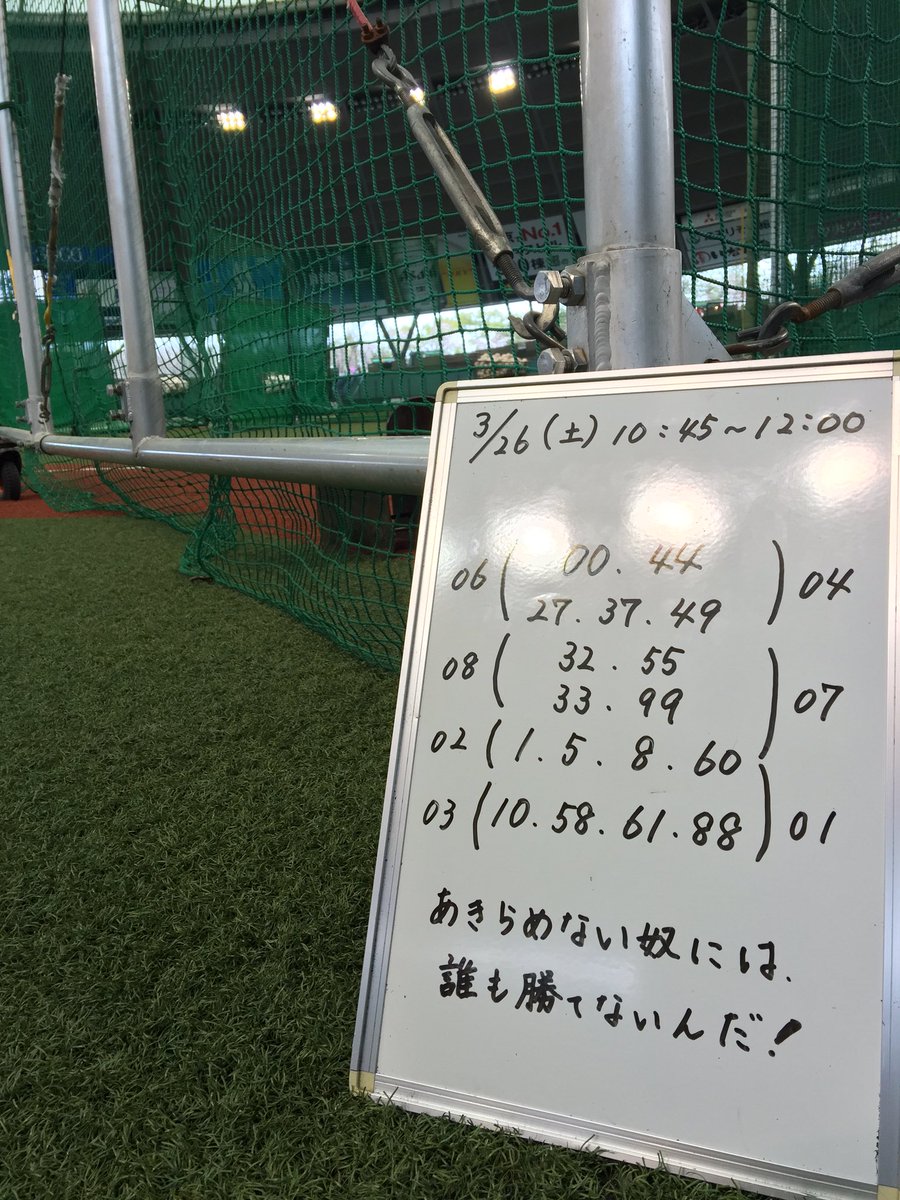 3/26(土) 10:45~12:00
06 ( 00. 44
27. 37. 49 ) 04
08 ( 32. 55
33. 99 ) 07
02 ( 1. 5. 8. 60
03 ( 10. 58. 61. 88 ) 01
あきらめない奴には、
誰も勝てないんだ!